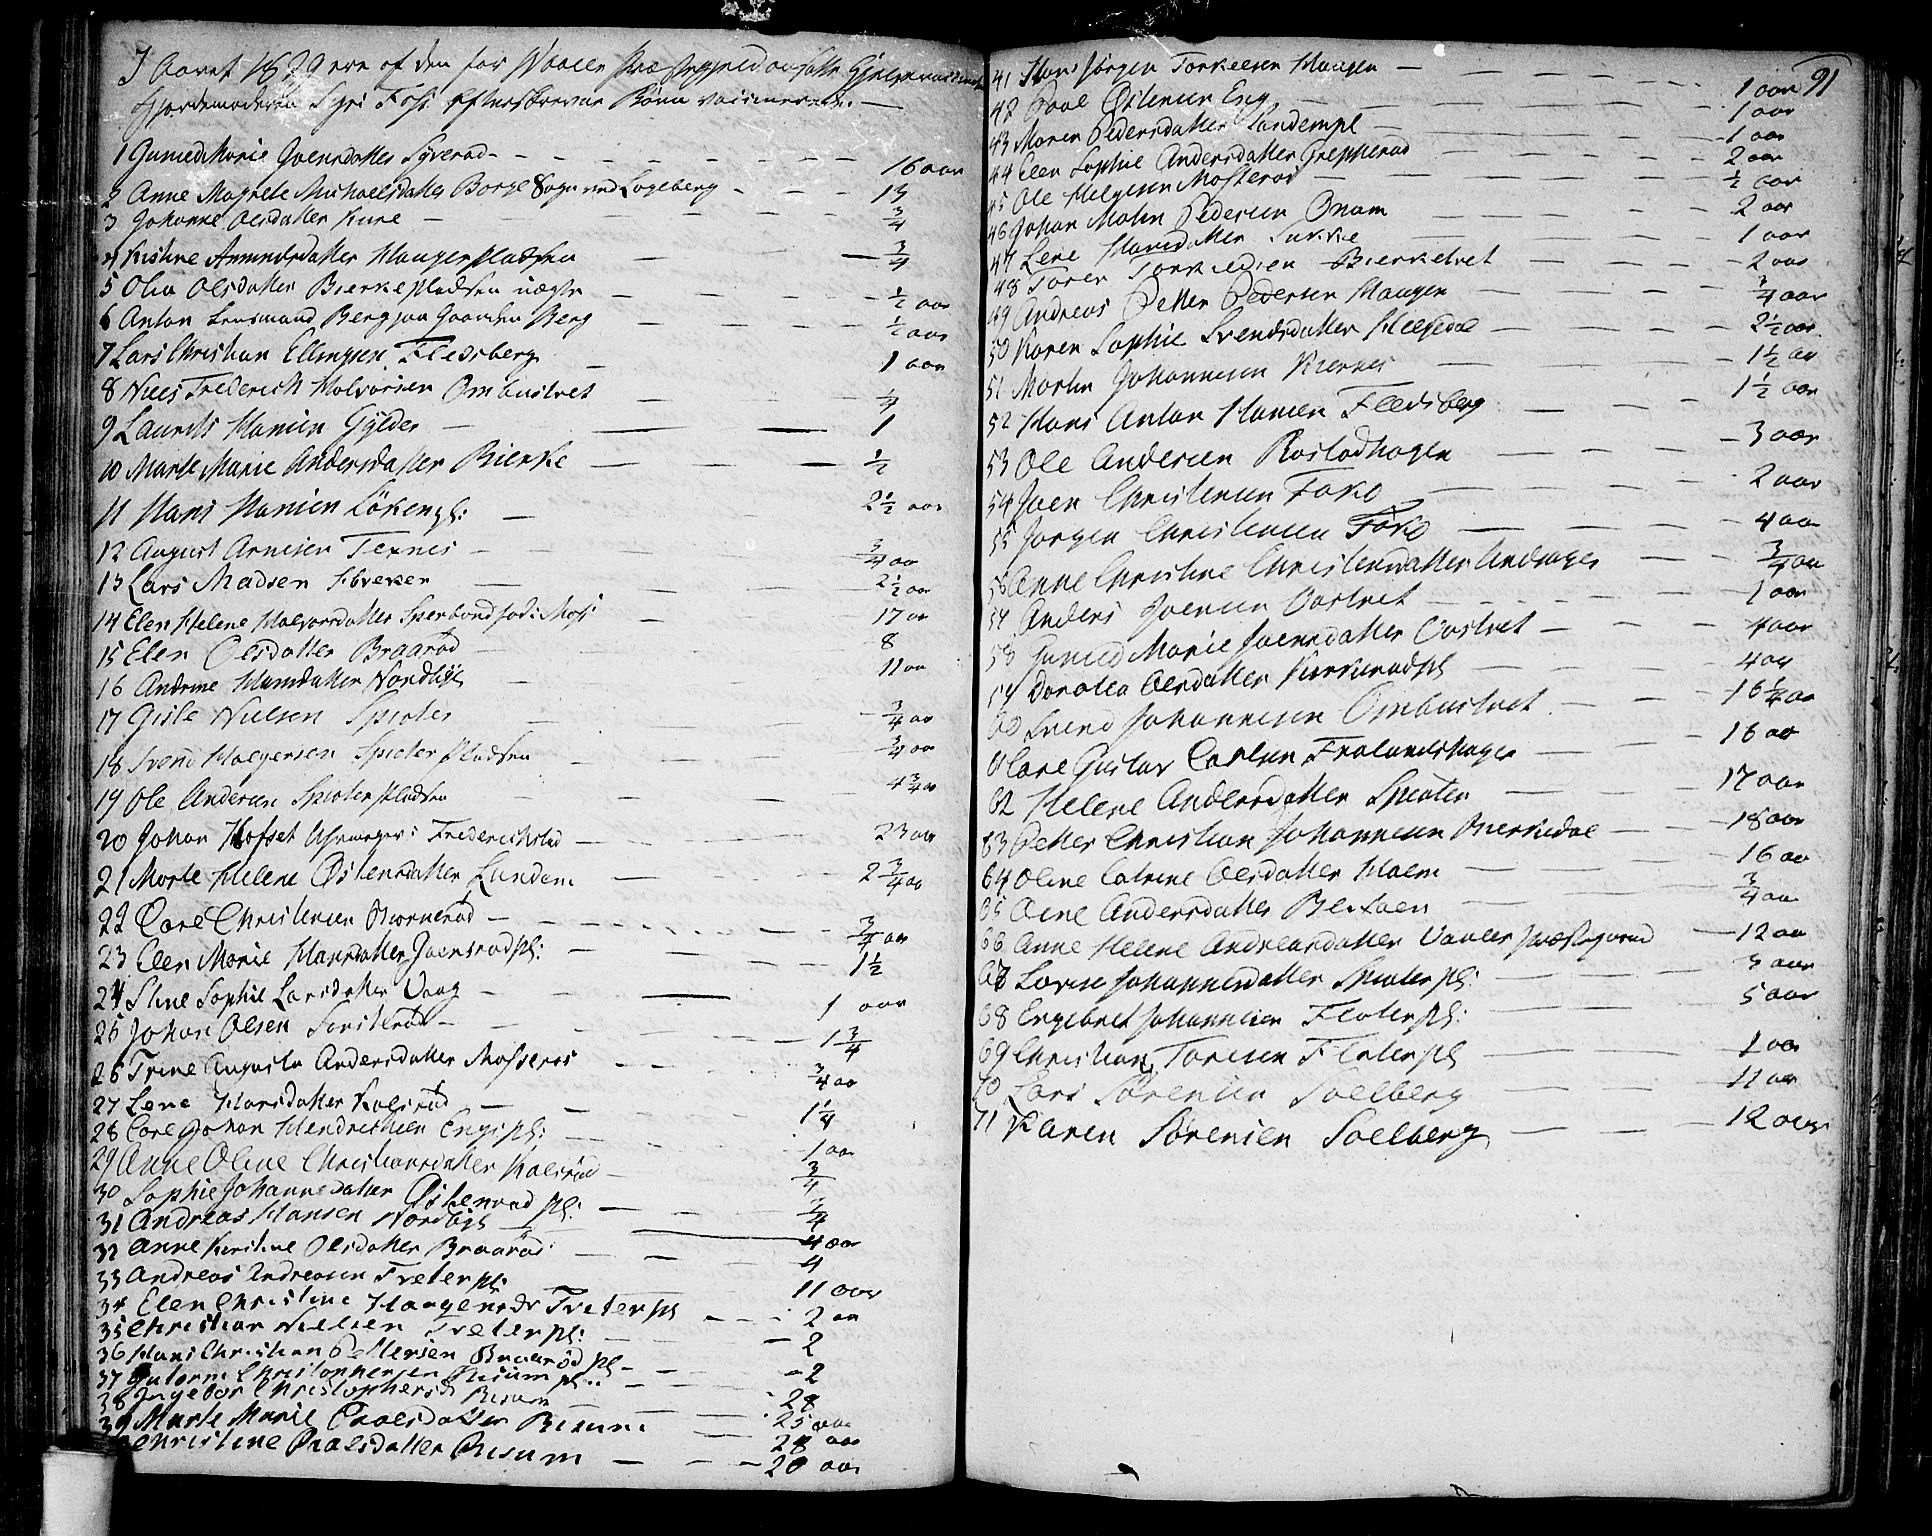 I Aaret 1829 ere af den for Vaaler Præstegjeld ansatte Hjelpevaccinat:
Gjordemoderen Syri Foss efterskrevne Børn vaccinerede. —
1 Gunild Marie Joensdatter Syverød — 16 aar
2 Anne Magrete Michaelsdatter Borge Sogn ved Lageberg — 13
3 Johanne Olsdatter Kure — 3/4
4 Kistine Amundsdatter Haugerpladsen — 3/4
5 Olia Olsdatter Bierkepladsen — 1/2 aar
6 Anton Berg paa Gaarden Berg — 1/2 aar
7 Lars Christian Ellingsen Fledsberg — 1 aar
8 Niels Frederich Halvorsen Ombustvet — 1/4
9 Laurits Hansen Gylder — 1
10 Marte Marie Andersdatter Bierke — 1/2
11 Hans Hansen Løkenpl: — 2 1/2 aar
12 August Arnesen Texnes — 3/4 aa
13 Lars Madsen — 2 1/2 aar
14 Elen Helene Halvorsdatter Moss — 17 aa
15 Elen Olsdatter Braarød — 8
16 Andrine Hansdatter Nordbye — 11 aa
17 Gisle Nielsen Spioter — 3/4 aa
18 Svend Holgersen Spioter pladsen — 3/4 aar
19 Ole Andersen Spioter pladsen — 4 3/4 aa
20 Johan Hofset Frederichstad — 23 aar
21 Marte Helene Østensdatter Lundem — 2 3/4 aa
22 Carl Christensen Biørnerød — 3/4 aar
23 Elen Marie Hansdatter Joensrød pl: — 1 1/2
24 Stine Sophie Larsdatter Vaag — 1 aar
25 Johan Olsen Sørsterød — 1 3/4
26 Trine Augusta Andersdatter Mosserød — 3/4 aa
27 Lene Hansdatter Kalsrød — 1 1/4
28 Carl Johan Hendrichsen Engs pl: — 1 aar
29 Anne Oline Christiansdatter Kalsrød — 3/4
30 Sophie Johannesdatter Østenrød pl: — 3/4
31 Andreas Hansen Nordbye — 4 aar
32 Anne Kerstine Olsdatter Braarød — 4
33 Andreas Andreasen Tveter pl: — 11 aar
34 Elen Christine Haagensdr Tveter pl — 2 aa
35 Christian Nielsen Tveter pl: — 2
36 Hans Christian Pettersen Braarød pl — 2
37 Gutorm Christophersen Risum pl: — 28
38 Ingebor Christophersd Risum — 25 aar
39 Marte Marie Paalsdatter Risum — 28 aar
Christine Paalsdatter Risum — 20 aar
91
41 Hans Jørgen Torkelsen Haugen — 1 aar
42 Paul Østensen Eng — 1 aar
43 Maren Pedersdatter Sandempl — 1 aar
44 Elen Sophie Andersdatter Grepperød — 2 aar
45 Ole Helgesen Mosterød — 1/2 aar
46 Johan Malin Pedersen Onam — 2 aar
47 Lene Hansdatter Sukke — 1 aar
48 Torer Torkildsen Bierketvet — 2 aar
49 Andreas Petter Pedersen Haugen — 3/4 aar
50 Karen Sophie Svendsdatter — 2 1/2 aar
51 Martin Johannesen Kiernes — 1 1/2 aa
52 Hans Anton Hansen Fledsberg — 1 1/2 aar
53 Ole Andersen Rostadhagen — 3 aar
54 Joen Christensen Foko — 2 aar
55 Jørgen Christensen Foko — 4 aa
56 Anne Christine Christensdatter — 3/4 aa
57 Anders Joensen Oostvet — 1 aar
58 Gunild Marie Joensdatter Oostvet — 4 aar
59 Dorotea Olsdatter Kirkerød pl — 4 aa
60 Svend Johannesen Ombustvet — 16 1/4 aa
61 Carl Gustav Carlsen Frolandshagen — 16 aa
62 Helene Andersdatter Spioten — 17 aar
63 Petter Christian Johannesen Bierkedal — 18 aar
64 Oline Catrine Olsdatter Holm — 16 aa
65 Oline Andersdatter — 3/4 aa
66 Anne Helene Andreasdatter Vaaler præstegaard — 12 aa
67 Lovise Johannesdatter Spioter pl: — 3 aar
68 Engebret Johannesen Floter pl: — 5 aar
69 Christian Toresen Floter pl — 1 aa
70 Lars Sørensen Solberg — 11 aar
71 Karen Sørensen Solberg — 12 aar